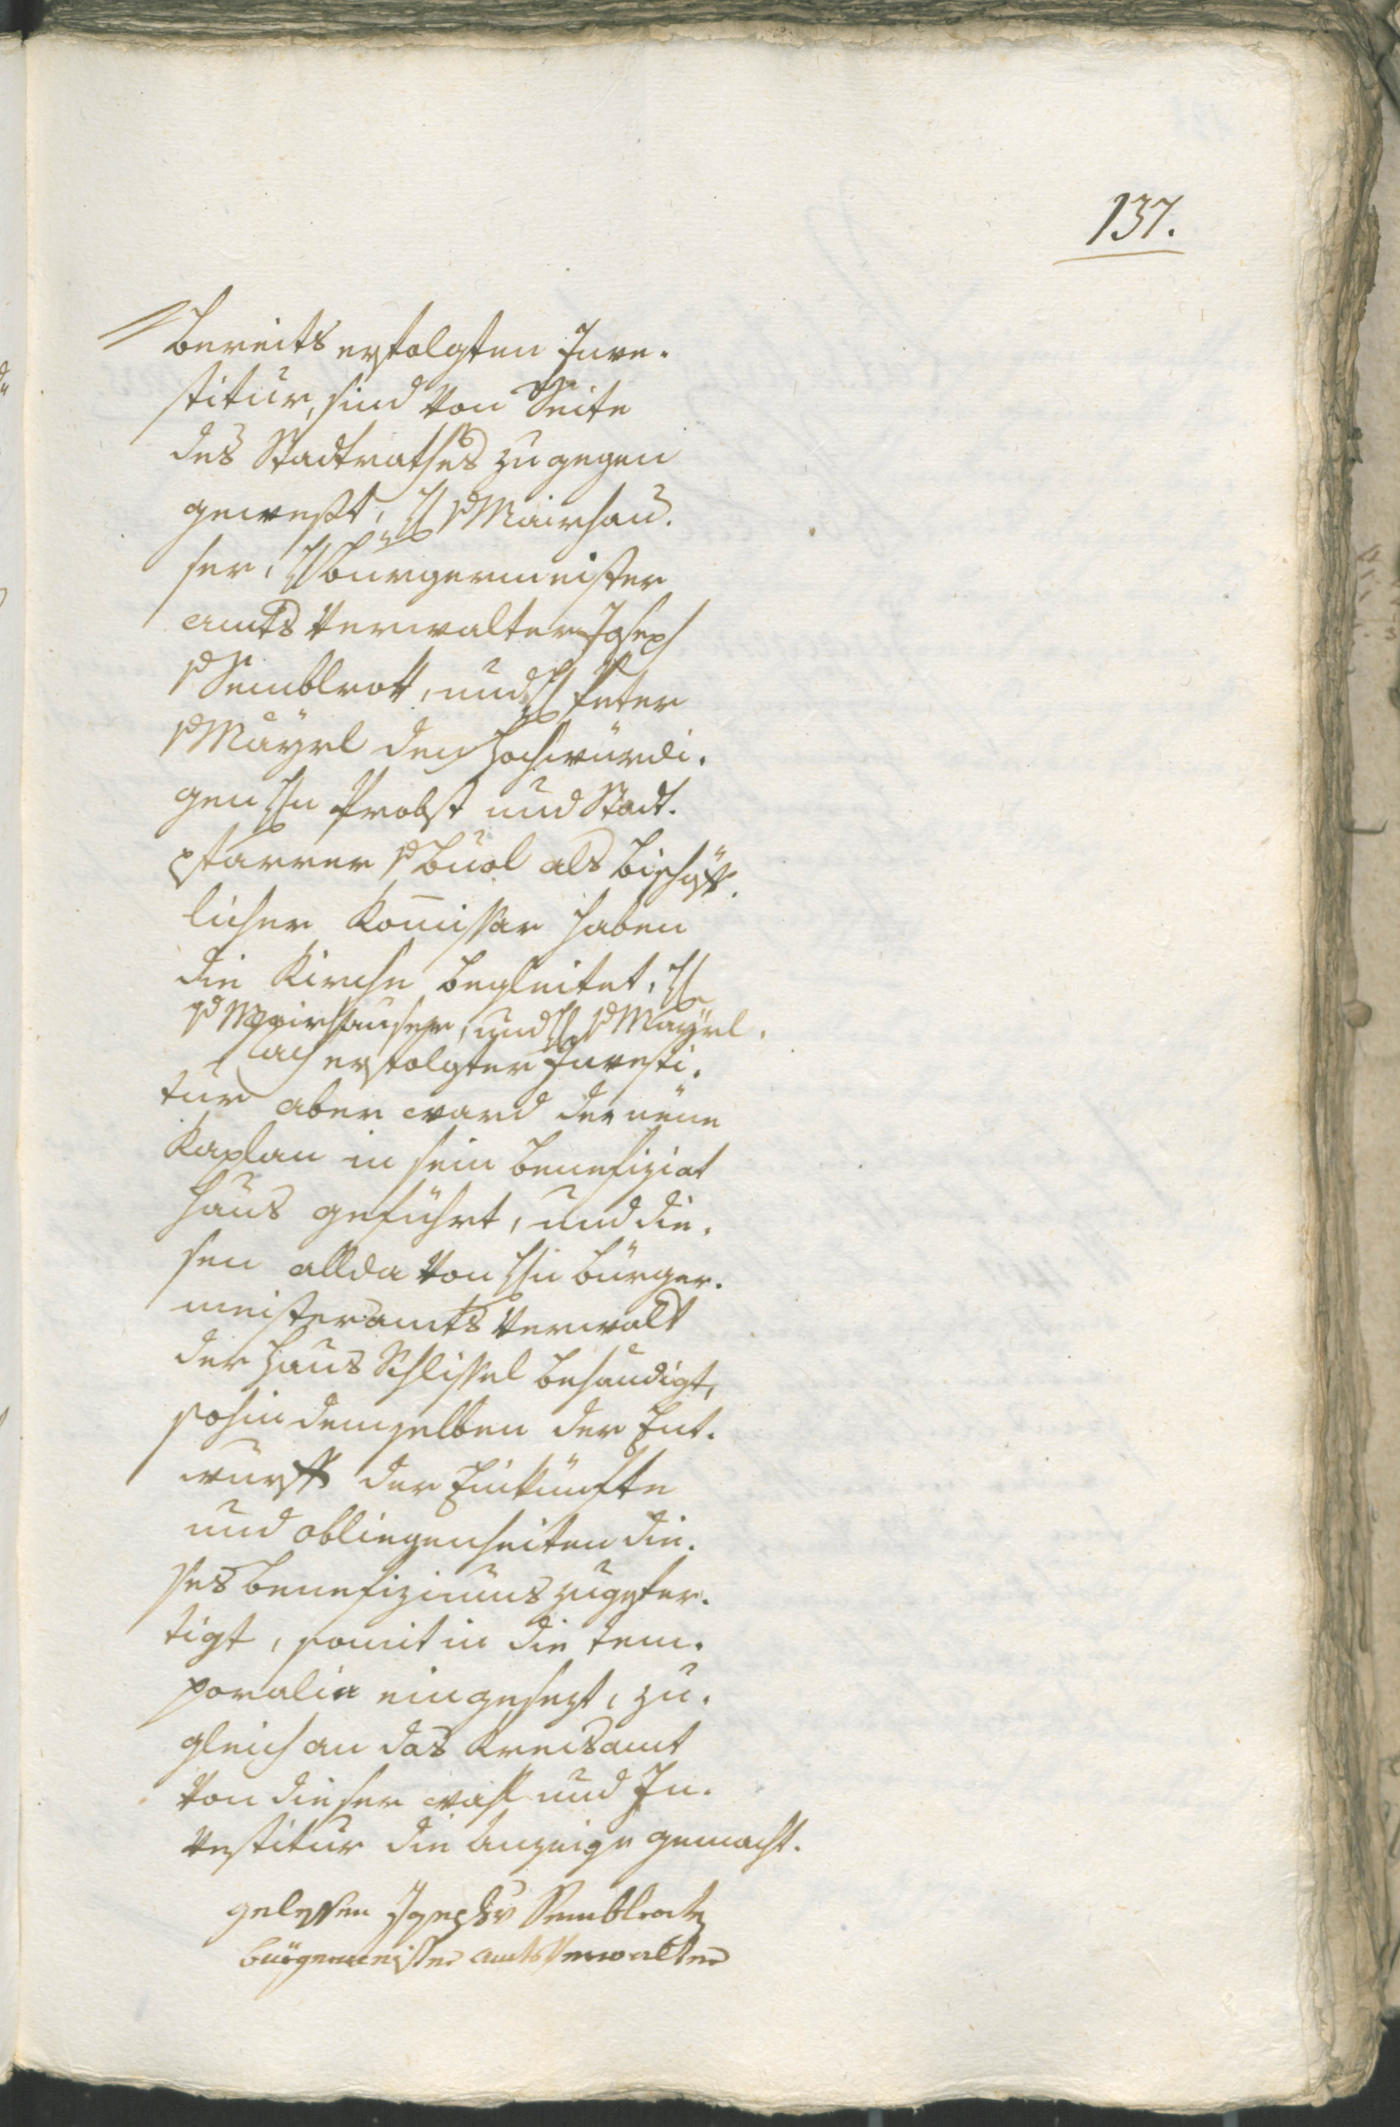 137.
bereits erfolgten Inve-
stitur, sind von Seite
des Stadtrathes zugegen
gewest, H v Mairhau-
ser, H Bürgermeister
amts Verwalter Joseph
v Semblrock, und H Peter
v Mayrl den Hochwürdi-
gen Hn Probst und Stadt-
pfarrer v Buol als bischöff-
licher Kom̄issar haben
die Kirche begleitet, H
v Mairhauser, und H v Mayrl.
Nach erfolgter Investi-
tur aber ward der neue
Kaplan in sein benefiziat
Haus geführt, und die-
sen allda von Hn Bürger-
meisteramts Verwalt
der Haus Schlissel behändigt,
sohin demselben der Ent-
wurff der Einkünfte
und obliegenheiten die-
ses benefiziums zugefer-
tigt, somit in die tem-
poralia eingesezt, zu-
gleich an das Kreisamt
von dieser wahl und In-
vestitur die Anzeige gemacht.
gelessen Joseph v Semblrock
burgermeister amts Verwalter